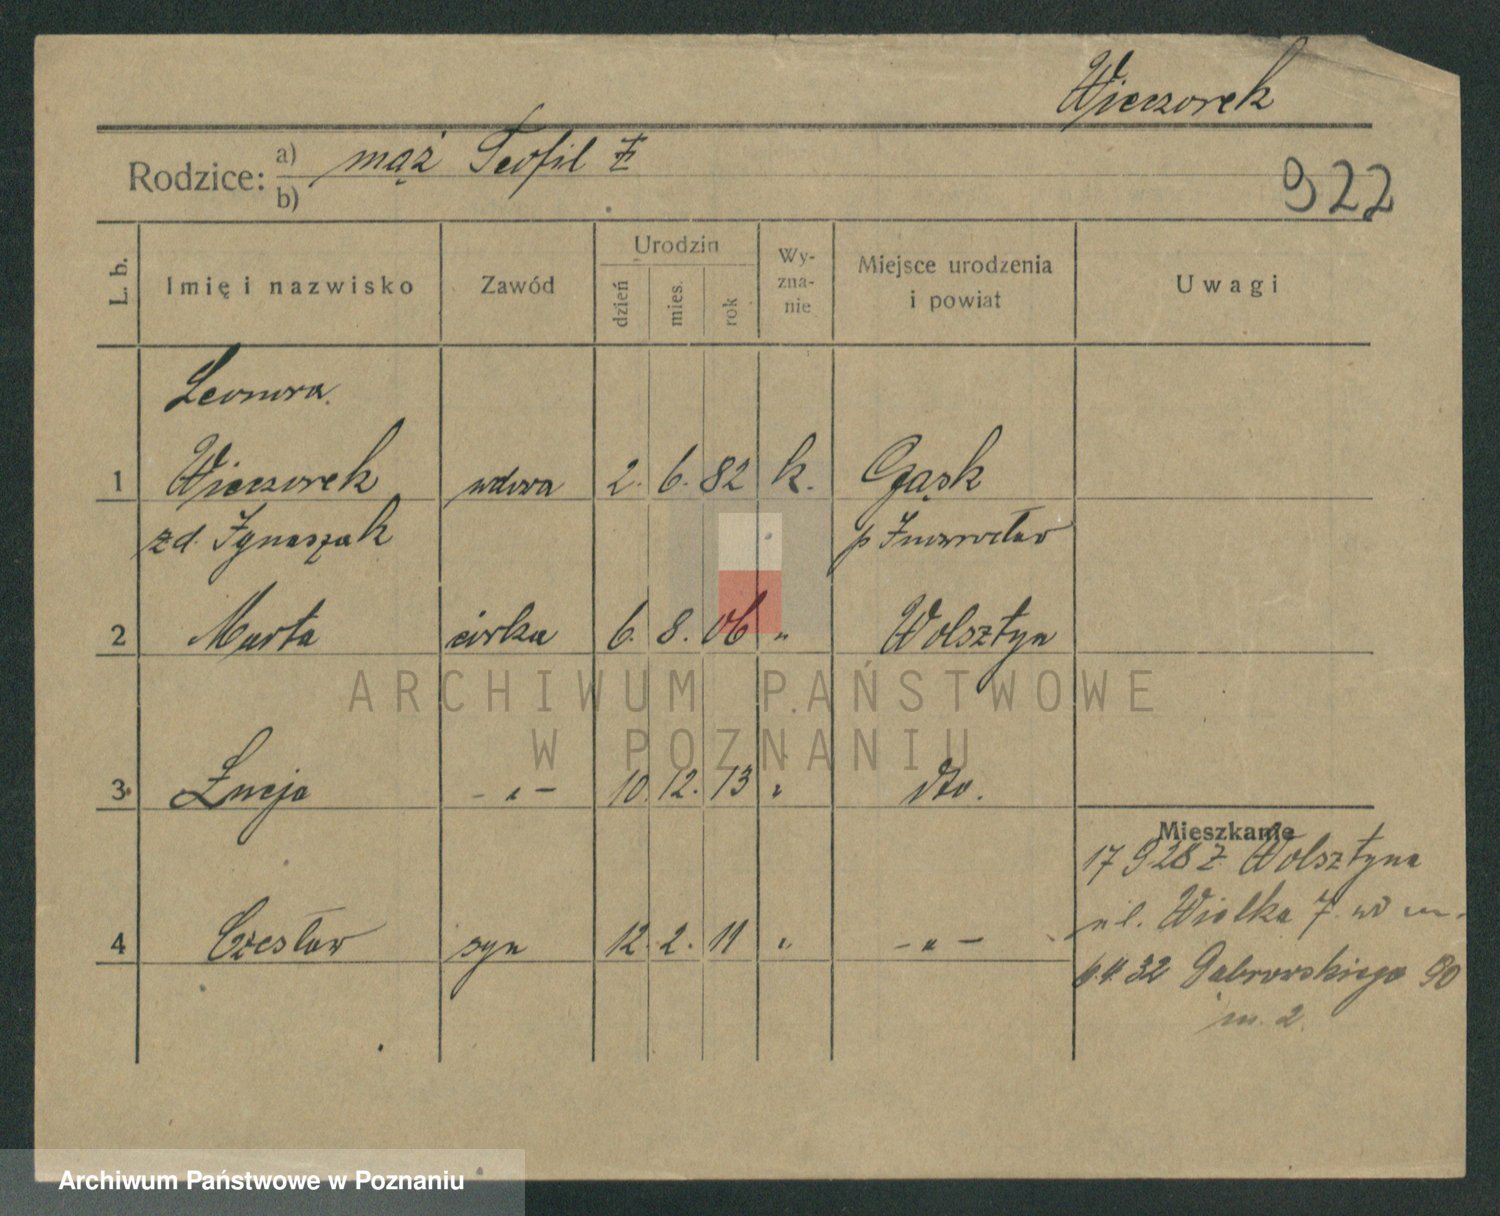 Wieczorek
Rodzice: a) mąż Teofil
b)
922
L. b.
Imię i nazwisko
Zawód
Urodzin
dzień
mies.
rok
Wy-
zna-
nie
Miejsce urodzenia
i powiat
Uwagi
Leonora
1 Wieczorek wdowa 2. 6. 82 k. Gąsk
zd. Ignaszak p Inowrocław
2 Marta córka 6. 8. 06 " Wolsztyn
ARCHIWUM PAŃSTWOWE
W POZNANIU
3 Łucja - " - 10. 12. 13 " dto.
Mieszkanie
17 9 28 z Wolsztyna
ul. Wielka 7.
4 Czesław syn 12. 2. 11 " - " -
6.4.32 Dąbrowskiego 90
m. 2
Archiwum Państwowe w Poznaniu